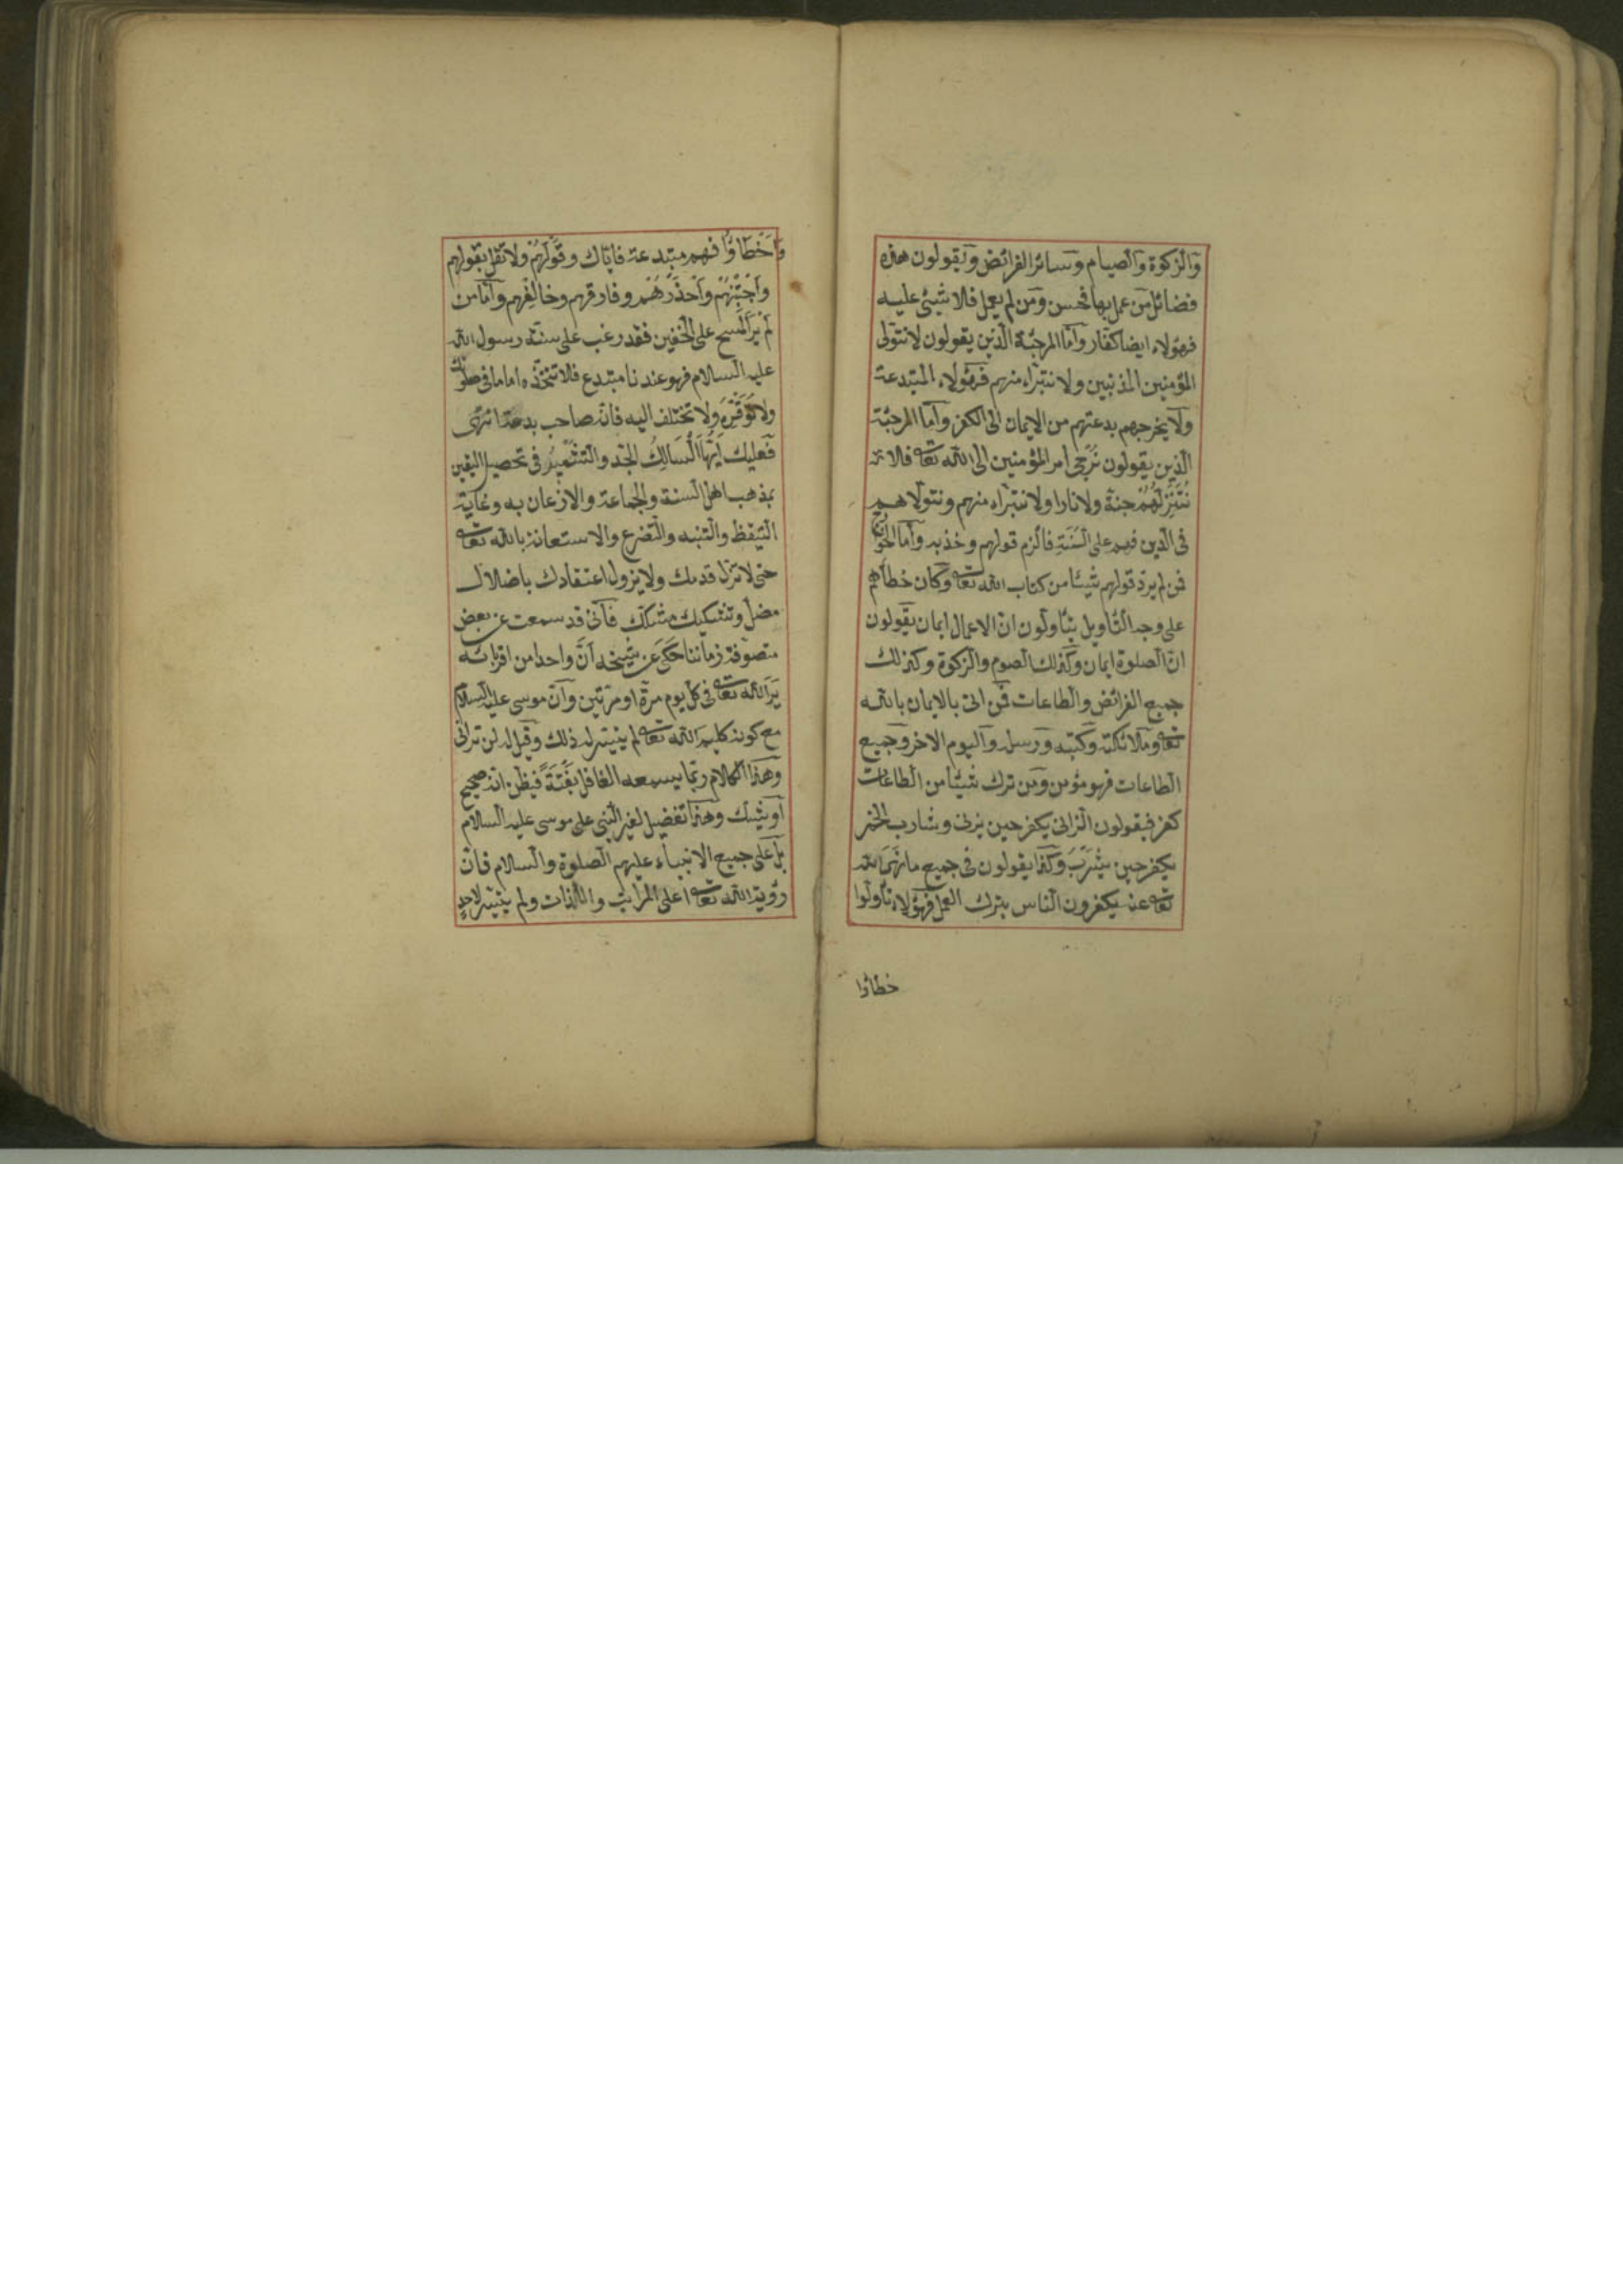 والزكوة والصيام وسائر الفرائض ويقولون هذه
فضائل من عمل بها فحسن ومن لم يعمل فلا شيئ عليه
فهؤلاء ايضا كفار واما المرجئة الذين يقولون لا نتولى
المؤمنين المذنبين ولا نتبراء منهم فهؤلاء المبتدعة
ولا يخرجهم بدعتهم من الايمان الى الكفر واما المرجئة
الذين يقولون نرجى امر المؤمنين الى الله تعالى فلا
ننزلهم جنة ولا نارا ولا نتبراء منهم ونتولاهم
فى الدين فهم على السنة فالزم قولهم وخذ به واما الخوارج
فمن لم يرد قولهم شيئا من كتاب الله تعالى وكان خطاؤهم
على وجه التأويل يتأولون ان الاعمال ايمان يقولون
ان الصلوة ايمان وكذلك الصوم والزكوة وكذلك
جميع الفرائض والطاعات فمن اتى بالايمان بالله
تعالى وملائكته وكتبه ورسله واليوم الاخر وجميع
الطاعات فهو مؤمن ومن ترك شيئا من الطاعات
كفر فيقولون الزانى يكفر حين يزنى وشارب الخمر
يكفر حين يشرب وكذا يقولون فى جميع ما نهى الله
تعالى عنه يكفرون الناس بترك العمل فهؤلاء تأولوا
خطاؤا
واخطاؤا فهم مبتدعة فاياك وقولهم ولا تقل بقولهم
واجتنبهم واحذرهم وفارقهم وخالفهم واما من
لم ير المسح على الخفين فقد رغب على سنة رسول الله
عليه السلام فهو عندنا مبتدع فلا تتخذه اماما فى صلوتك
ولا توقره ولا تختلف اليه فانه صاحب بدعة انتهى
فعليك ايها السالك الجد والتشمير فى تحصيل اليقين
بمذهب اهل السنة والجماعة والاذعان به وغاية
التيقظ والتنبه والتضرع والاستعانة بالله تعالى
حتى لا تزل قدمك ولا يزول اعتقادك باضلال
مضل وتشكيك مشكك فانى قد سمعت عن بعض
متصوفة زماننا حكى عن شيخه ان واحدا من اقربائه
ير الله تعالى فى كل يوم مرة او مرتين وان موسى عليه السلام
مع كونه كليم الله تعالى لم يتيسر له ذلك وقيل له لن ترانى
وهذا الكلام ربما يسمعه الغافل بغتة فيظن انه صحيح
او يشك وهذا تفضيل لغير النبى على موسى عليه السلام
بل على جميع الانبياء عليهم الصلوة والسلام فان
رؤية الله تعالى اعلى المراتب واللذات ولم يتيسر لاحد